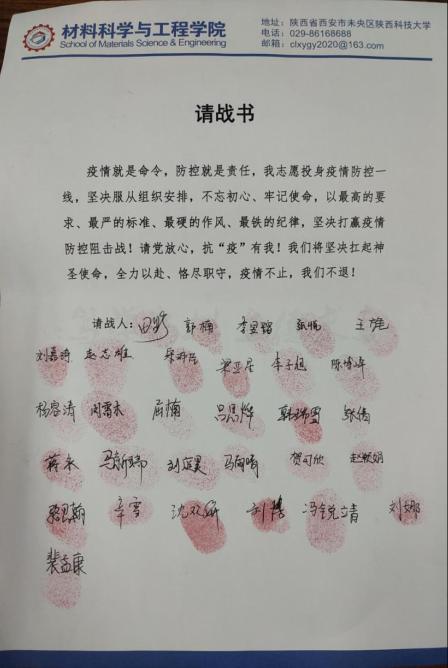 材料科学与工程学院
School of Materials Science & Engineering
地址：陕西省西安市未央区陕西科技大学
电话：029-86168688
邮箱：clxygy2020@163.com
请战书
疫情就是命令，防控就是责任，我志愿投身疫情防控一
线，坚决服从组织安排，不忘初心、牢记使命，以最高的要
求、最严的标准、最硬的作风、最铁的纪律，坚决打赢疫情
防控阻击战！请党放心，抗“疫”有我！我们将坚决扛起神
圣使命，全力以赴、恪尽职守，疫情不止，我们不退！
请战人： 郭楠 王旄
赵志雄 梁亚星 李子旭
杨容清 周雷杰 屈楠 吕思烨 韩瑞雪 张倩
蒋永 马新瑞 刘庭昊 马向晴 贺可欣
辛雪 沈双妍 刘博 冯锐靖 刘娜
裴孟康